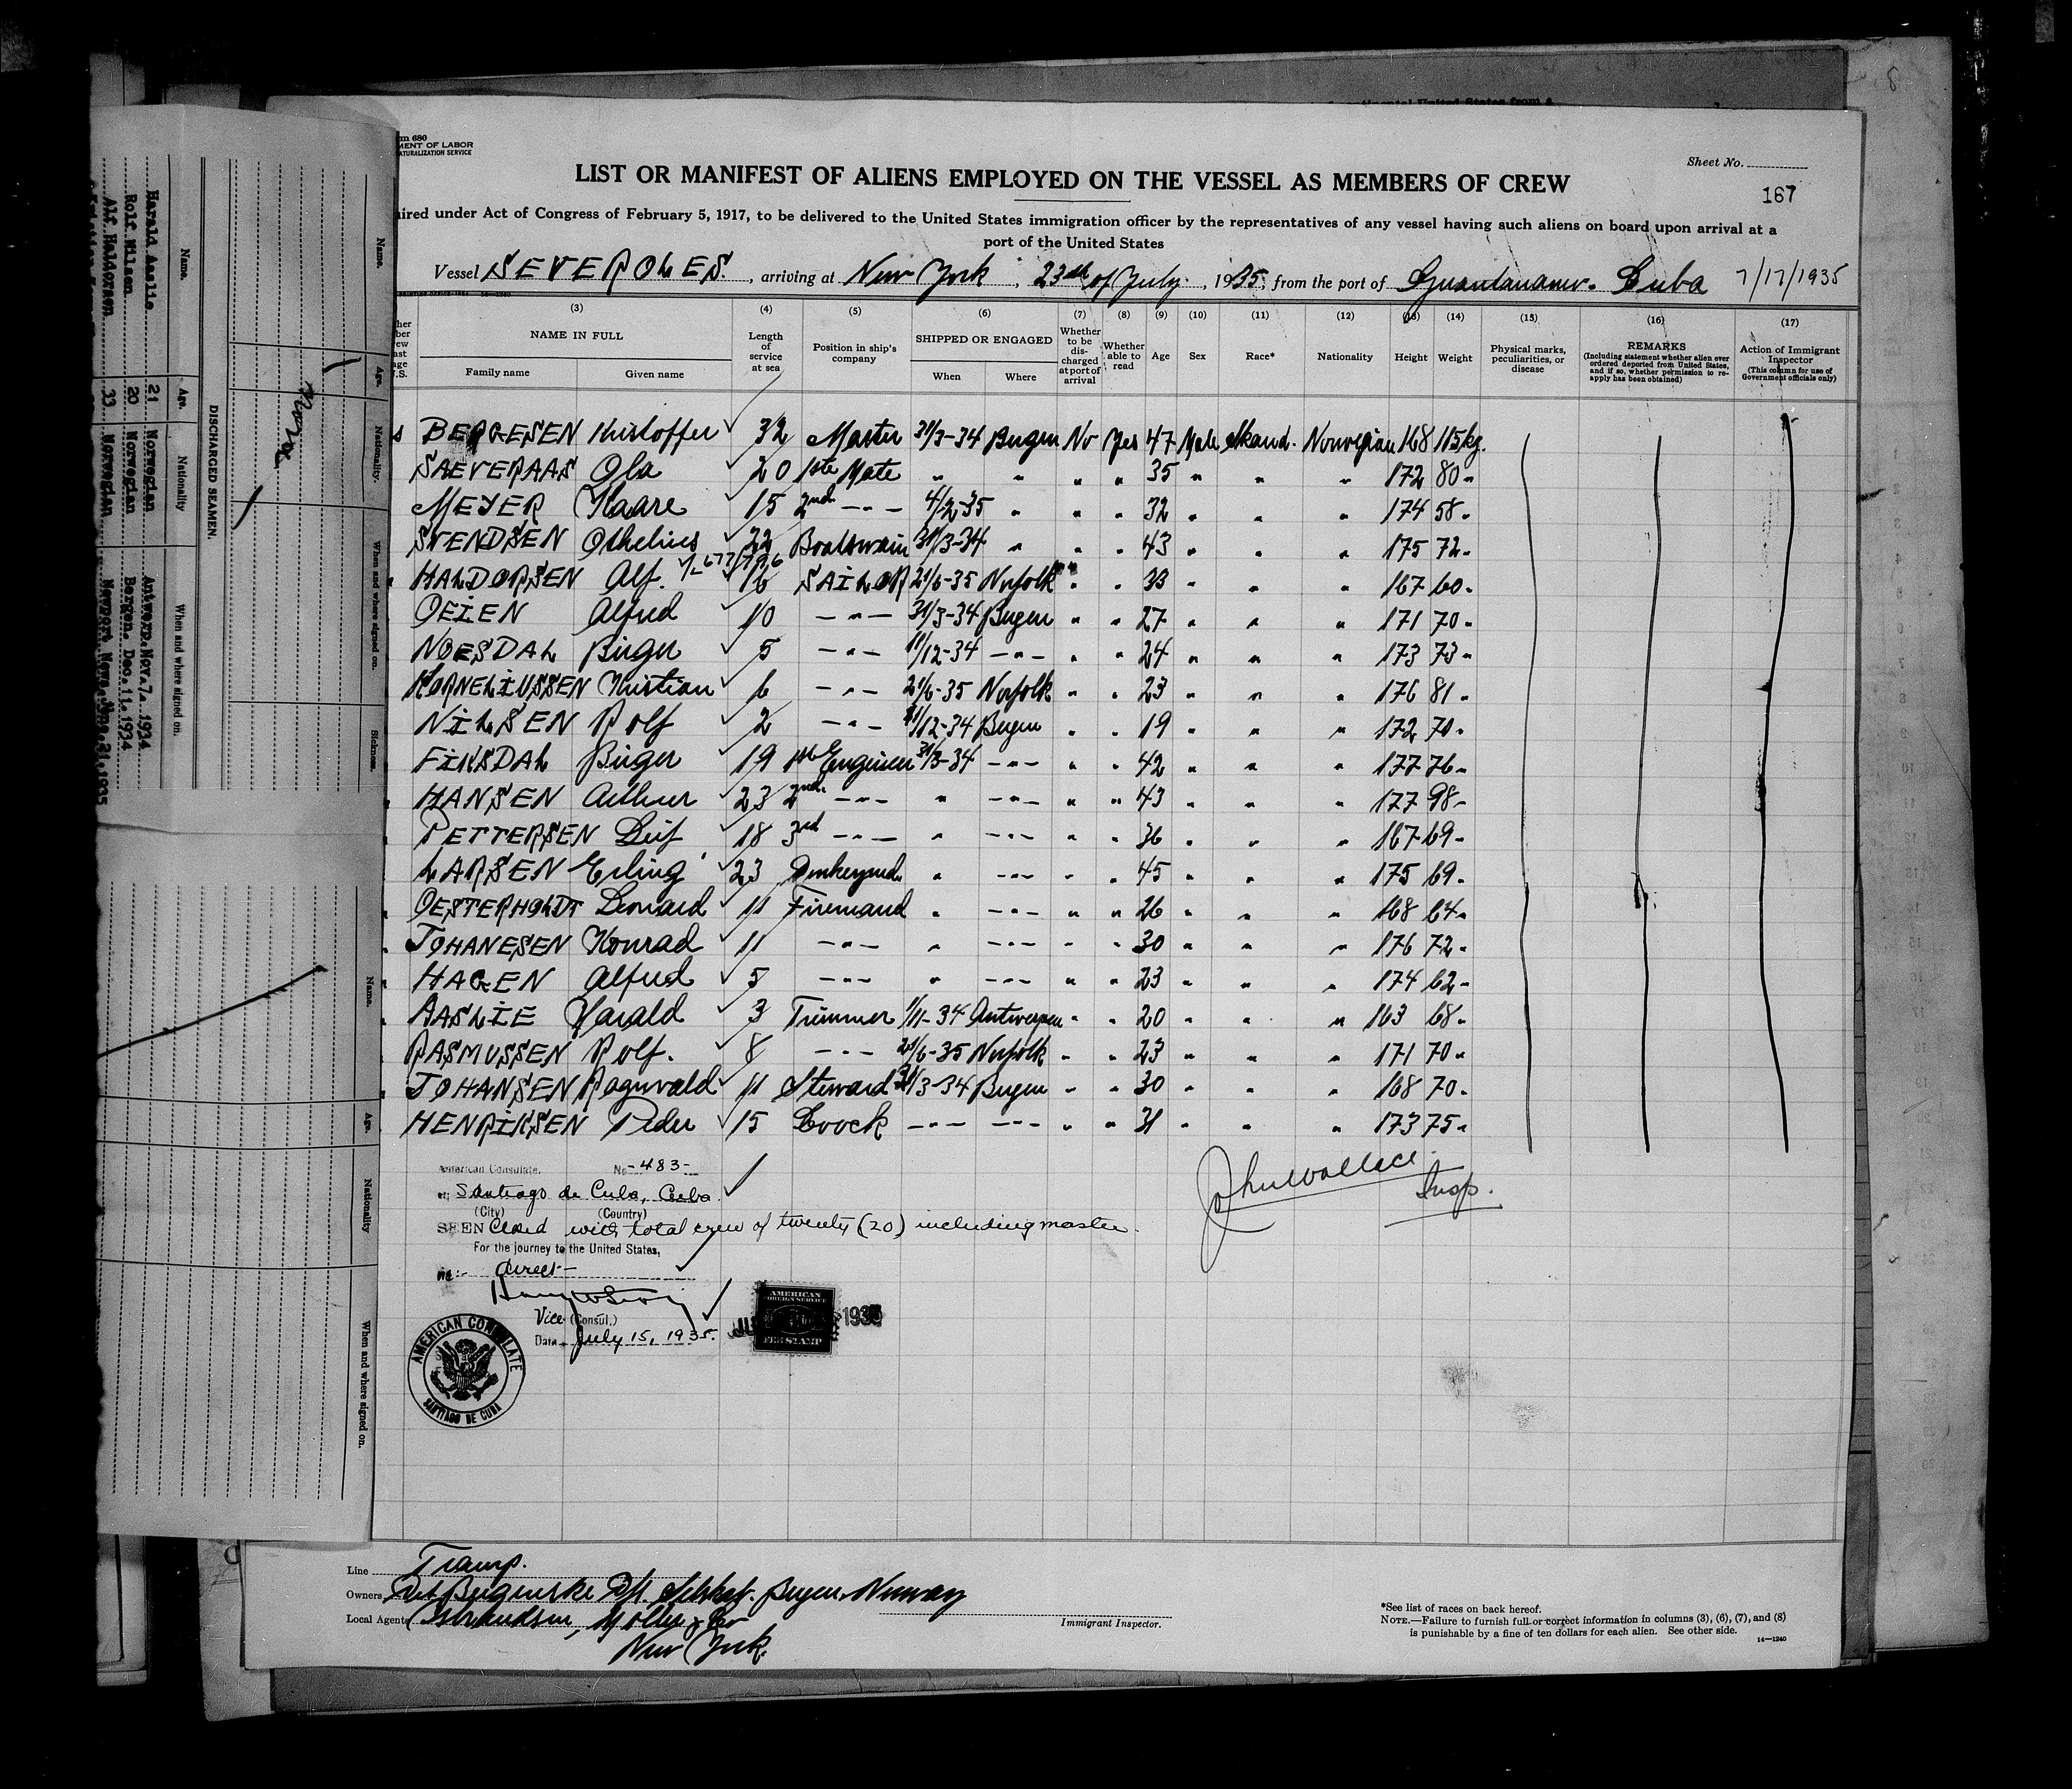 Form 680
MENT OF LABOR
NATURALIZATION SERVICE
Sheet No.
LIST OR MANIFEST OF ALIENS EMPLOYED ON THE VESSEL AS MEMBERS OF CREW
167
ired under Act of Congress of February 5, 1917, to be delivered to the United States immigration officer by the representatives of any vessel having such aliens on board upon arrival at a
port of the United States
Vessel SEVEROLES. , arriving at New York , 23rd of July , 1935, from the port of Guantanamo. Cuba 7/17/1935
(3) (4) (5) (6) (7) (8) (9) (10) (11) (12) (13) (14) (15) (16) (17)
NAME IN FULL Length of service at sea Position in ship's company SHIPPED OR ENGAGED Whether to be discharged at port of arrival Whether able to read Age Sex Race* Nationality Height Weight Physical marks, peculiarities, or disease REMARKS (Including statement whether alien ever ordered deported from United States, and if so, whether permission to reapply has been obtained) Action of Immigrant Inspector (This column for use of Government officials only)
Family name Given name When Where
BERGESEN Kristoffer 32 Master 31/3-34 Bergen No Yes 47 Male Skand. Norwegian 168 115kg.
SAEVERAAS Ola 20 1ste Mate " " " " 35 " " " 172 80 "
MEYER Kaare 15 2nd -"- 4/2-35 " " " 32 " " " 174 58 "
SVENDSEN Othelius 22 Boatswain 31/3-34 " " " 43 " " " 175 72 "
HALDORSEN Alf. 16 SAILOR 21/6-35 Norfolk " " 33 " " " 167 60 "
OEIEN Alfred 10 -"- 31/3-34 Bergen " " 27 " " " 171 70 "
NOESDAL Birger 5 -"- 11/12-34 -"- " " 24 " " " 173 73 "
KORNELIUSSEN Kristian 6 -"- 21/6-35 Norfolk " " 23 " " " 176 81 "
NILSEN Rolf 2 -"- 11/12-34 Bergen " " 19 " " " 172 70 "
FINSDAL Birger 19 1st Engineer 31/3-34 -"- " " 42 " " " 177 76 "
HANSEN Arthur 23 2nd -"- " -"- " " 43 " " " 177 98 "
PETTERSEN Leif 18 3rd -"- " -"- " " 36 " " " 167 69 "
LARSEN Erling 23 Donkeymd. " -"- " " 45 " " " 175 69 "
OESTERHOLDT Leonard 11 Firemand " -"- " " 26 " " " 168 64 "
JOHANESEN Konrad 11 -"- " -"- " " 30 " " " 176 72 "
HAGEN Alfred 5 -"- " -"- " " 23 " " " 174 62 "
AASLIE Harald 3 Trimmer 1/11-34 Antwerpen " " 20 " " " 163 68 "
RASMUSSEN Rolf. 8 -"- 21/6-35 Norfolk " " 23 " " " 171 70 "
JOHANSEN Ragnvald 11 Steward 31/3-34 Bergen " " 30 " " " 168 70 "
HENRIKSEN Peder 15 Coock -"- -"- " " 31 " " " 173 75 "
American Consulate, No -483-
at Santiago de Cuba, Cuba
(City) (Country)
SEEN Closed with total crew of twenty (20) including master.
For the journey to the United States,
via:- direct-
Vice (Consul.)
Date July 15, 1935.
AMERICAN FOREIGN SERVICE
FEE STAMP
1935
AMERICAN CONSULATE
SANTIAGO DE CUBA
John Wallace
Insp.
Line Tramp.
Owners Det Bergenske D/S. Selskab. Bergen Norway
Local Agents
New York.
Immigrant Inspector.
*See list of races on back hereof.
NOTE.—Failure to furnish full or correct information in columns (3), (6), (7), and (8)
is punishable by a fine of ten dollars for each alien. See other side.
14—1240
DISCHARGED SEAMEN.
Name. Age. Nationality When and where signed on.
Harald Aaslie 21 Norwegian Antwerp.Nov.7. 1934
Rolf Nilsen 20 Norwegian Bergen. Dec.11.1934
Alf Haldorsen 33 Norwegian Newport News. June.21.1935
Name. Age. Nationality. When and where signed on. Sickness.
None
Name. Age. Nationality When and where signed on.